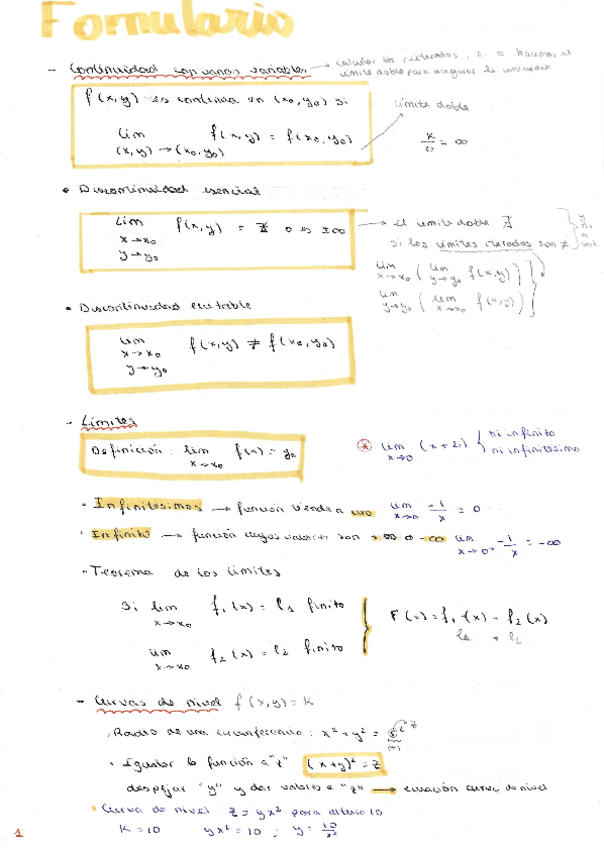 Formulario
- Continuidad con varias variables → calcular los reiterados, si = hacemos el
límite doble para asegurar la continuidad
f(x,y) es continua en (x₀,y₀) si
lim f(x,y) = f(x₀,y₀)
(x,y)→(x₀,y₀)
límite doble
K/0 = ∞
• Discontinuidad esencial
lim f(x,y) = ∄ o es ±∞
x→x₀
y→y₀
→ el límite doble ∄
si los límites iterados son ≠
lim ( lim f(x,y) )
x→x₀ y→y₀
lim ( lim f(x,y) )
y→y₀ x→x₀
• Discontinuidad evitable
lim f(x,y) ≠ f(x₀,y₀)
x→x₀
y→y₀
- Límites
Definición: lim f(x) = y₀
x→x₀
* lim (x+2) { ni infinito
x→0 ni infinitésimo
• Infinitésimos → función tiende a cero lim -1/x = 0
x→∞
• Infinito → función cuyos valores son +∞ o -∞ lim -1/x = -∞
x→0⁺
- Teorema de los límites
Si lim f₁(x) = l₁ finito
x→x₀
lim f₂(x) = l₂ finito
x→x₀
F(x) = f₁(x) + f₂(x)
- Curvas de nivel f(x,y) = K
. Radio de una circunferencia: x² + y² =
• Igualar la función a "z" (x+y)² = z
despejar "y" y dar valores a "z" → ecuación curva de nivel
• Curva de nivel z = yx² para altura 10
K = 10 yx² = 10 ; y = 10/x²
1